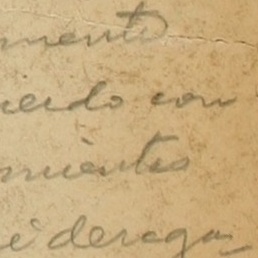 mente
uerdo con
mientes
i derega